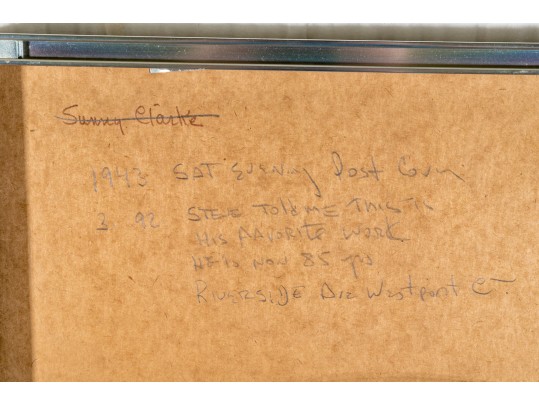 Sunny Clarke
1943 SAT EVENING Post Cover
3. 92 STEVE TOLD ME THIS IS
HIS FAVORITE WORK
HE is NOW 85 yrs
RIVERSIDE AVE WESTPORT CT.